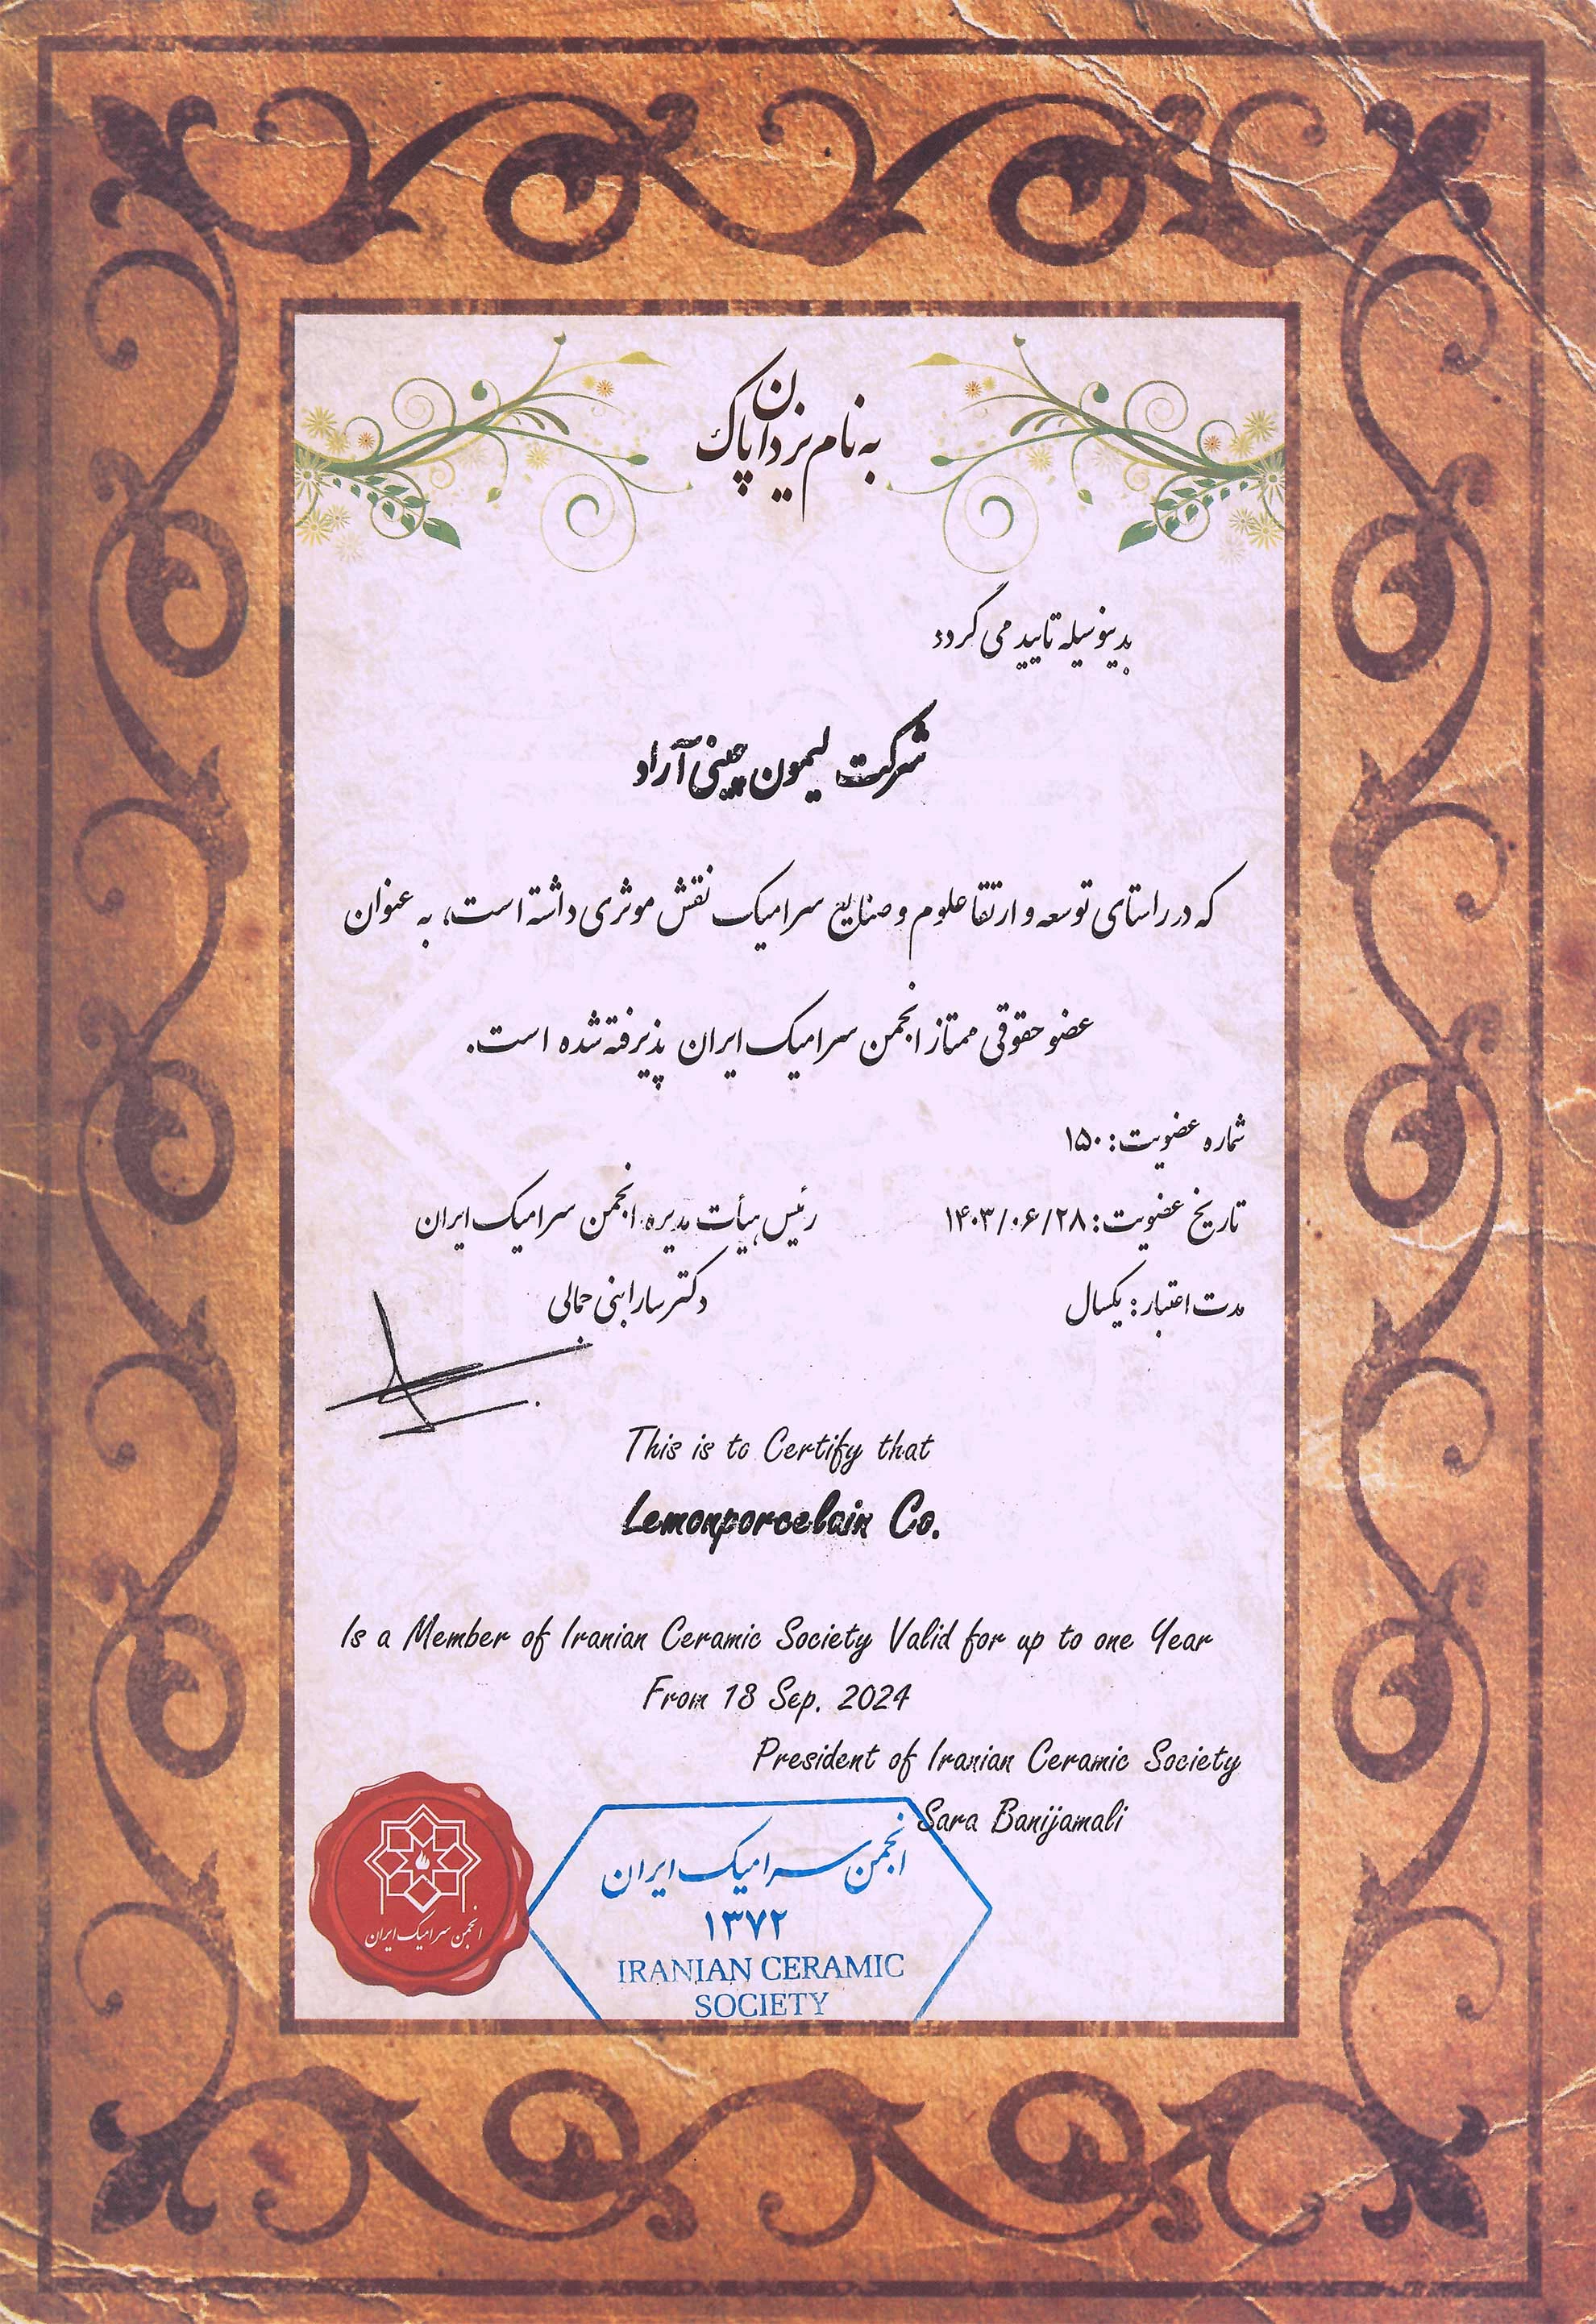 به نام یزدان پاک
بدینوسیله تایید می گردد
شرکت لیمون چینی آراد
که در راستای توسعه و ارتقا علوم و صنایع سرامیک نقش موثری داشته است، به عنوان
عضو حقوقی ممتاز انجمن سرامیک ایران پذیرفته شده است.
شماره عضویت: ۱۵۰
تاریخ عضویت: ۱۴۰۳/۰۶/۲۸
مدت اعتبار: یکسال
رئیس هیأت مدیره انجمن سرامیک ایران
دکتر سارا بنی جمالی
This is to Certify that
Lemonporcelain Co.
Is a Member of Iranian Ceramic Society Valid for up to one Year
From 18 Sep. 2024
President of Iranian Ceramic Society
Sara Banijamali
انجمن سرامیک ایران
انجمن سرامیک ایران
۱۳۷۲
IRANIAN CERAMIC
SOCIETY